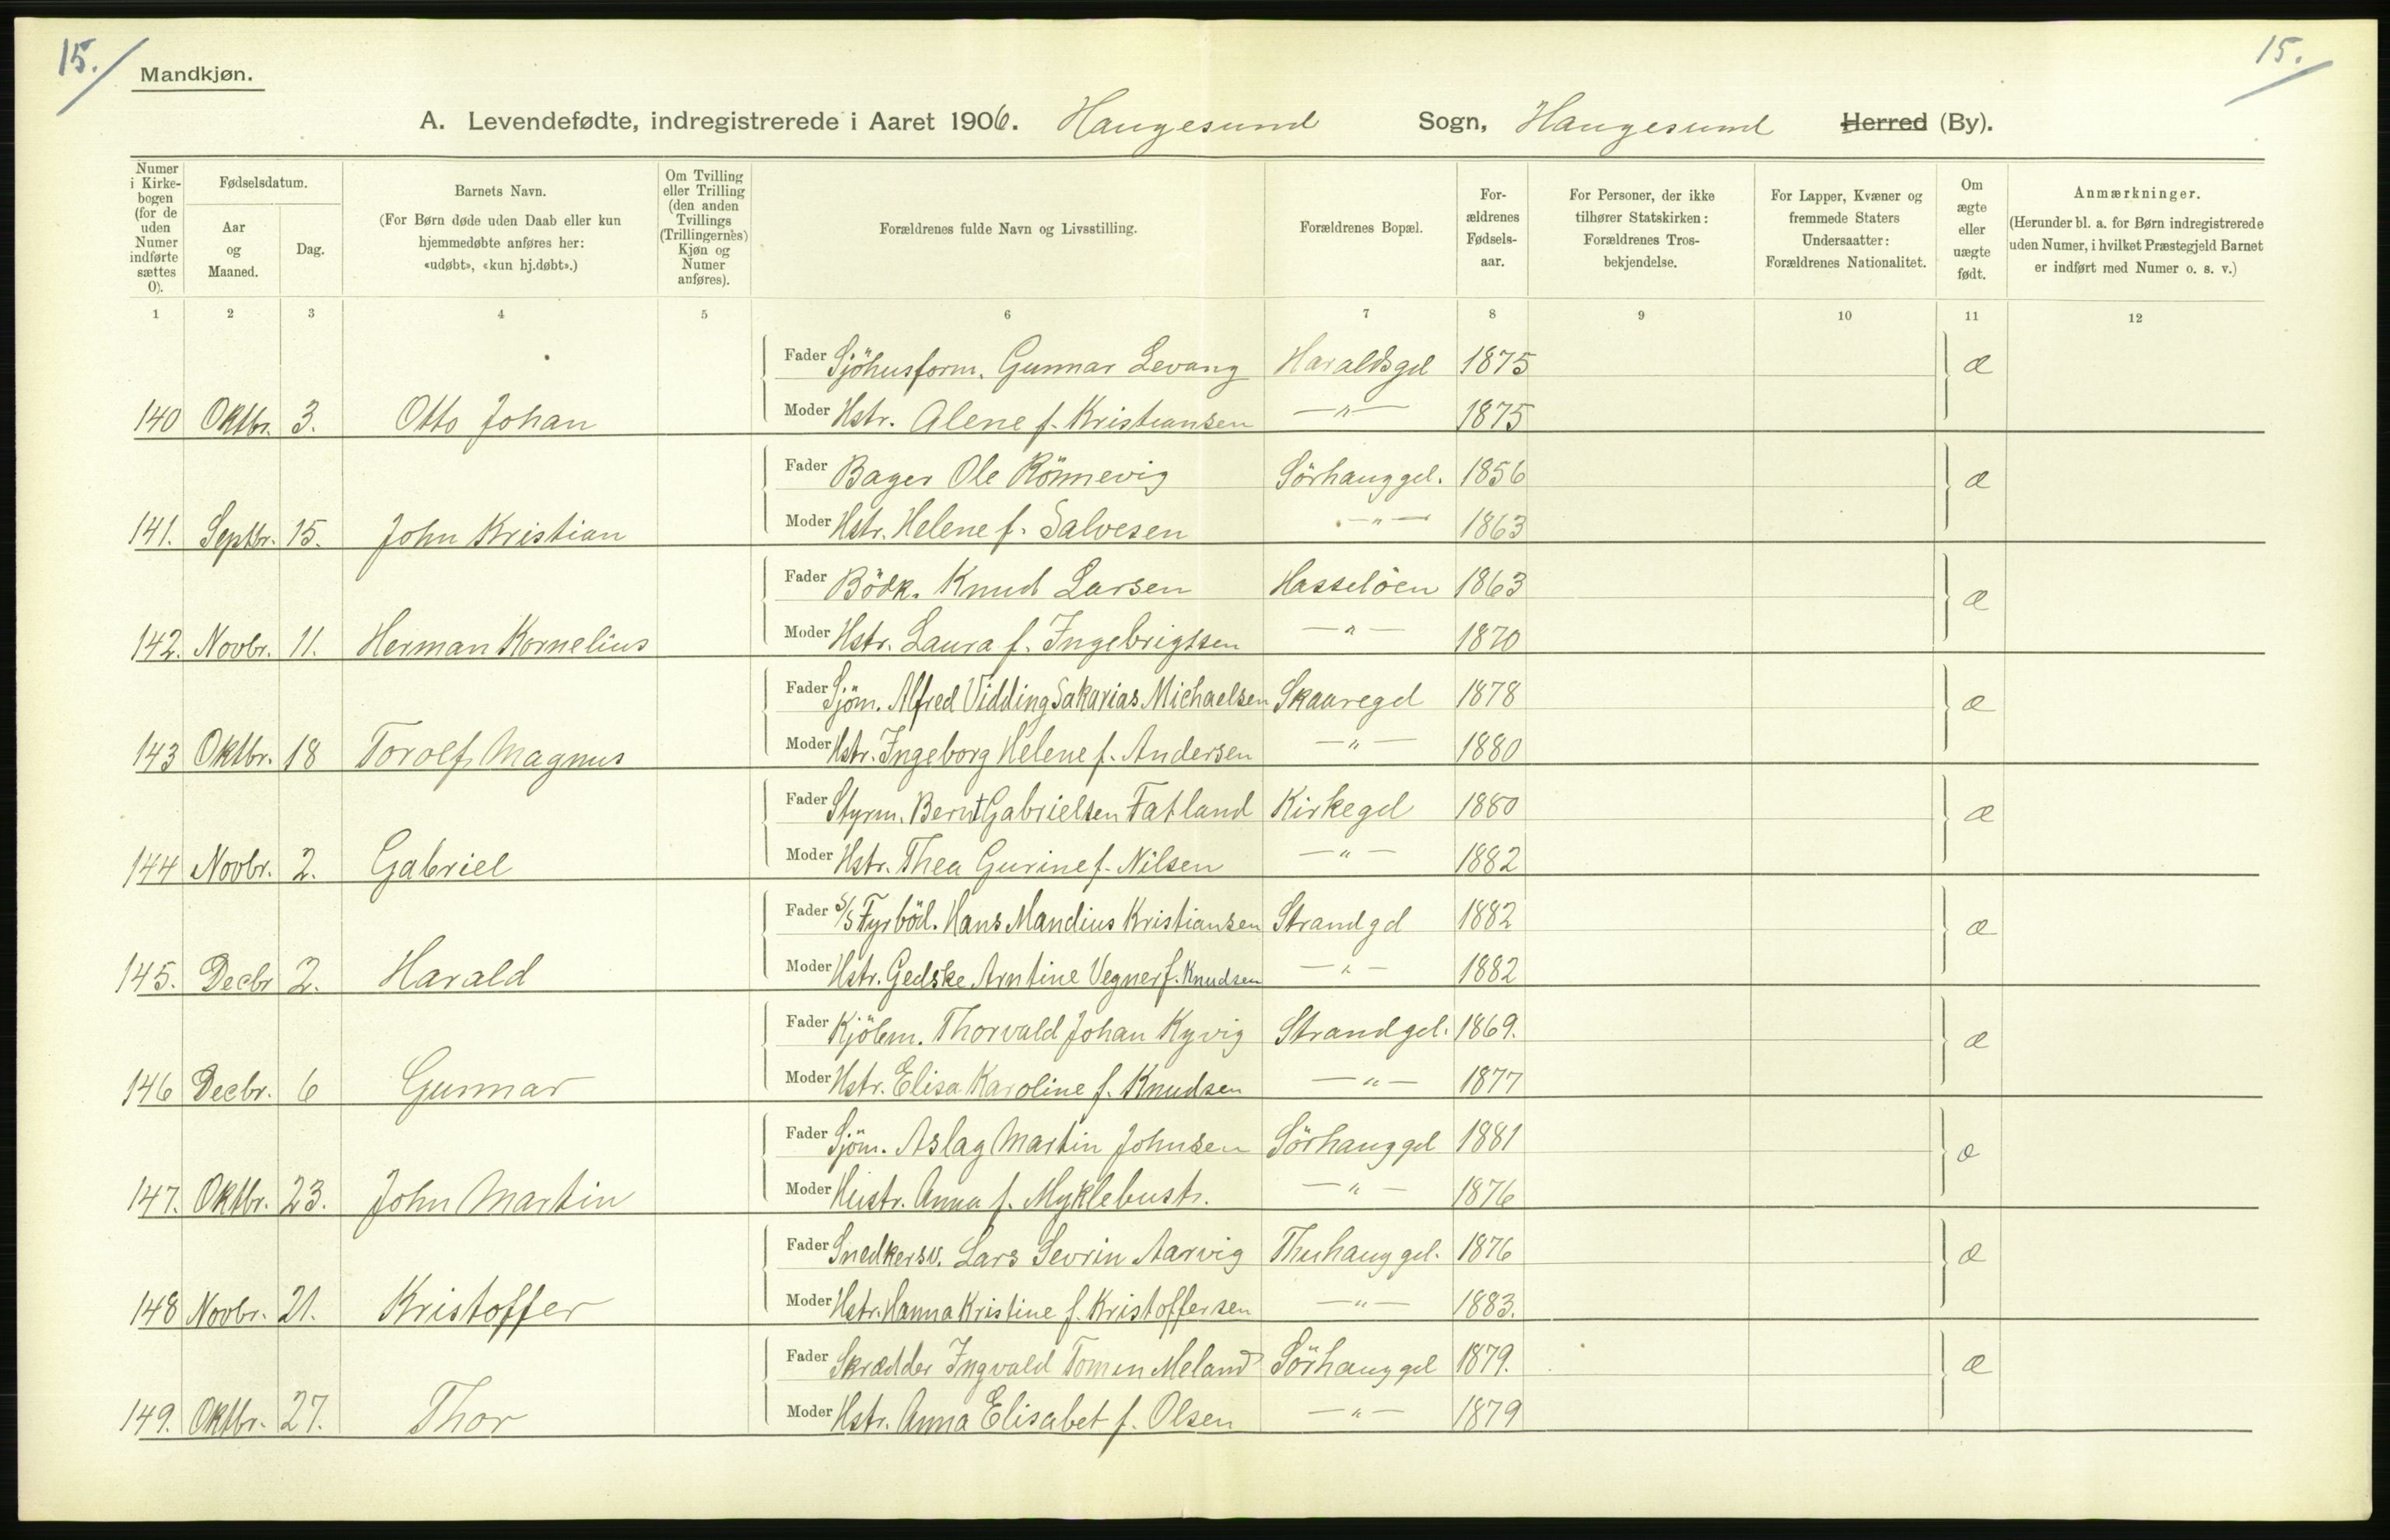 15. 15.
Mandkjøn.
A. Levendefødte, indregistrerede i Aaret 1906. Haugesund Sogn, Haugesund Herred (By).
Numer i Kirkebogen (for de uden Numer indførte sættes 0).
Fødselsdatum.
Aar og Maaned.
Dag.
Barnets Navn.
(For Børn døde uden Daab eller kun
hjemmedøbte anføres her:
«udøbt», «kun hj.døbt».)
Om Tvilling
eller Trilling
(den anden
Tvillings
(Trillingernes)
Kjøn og
Numer
anføres).
Forældrenes fulde Navn og Livsstilling.
Forældrenes Bopæl.
For-
ældrenes
Fødsels-
aar.
For Personer, der ikke
tilhører Statskirken:
Forældrenes Tros-
bekjendelse.
For Lapper, Kvæner og
fremmede Staters
Undersaatter:
Forældrenes Nationalitet.
Om
ægte
eller
uægte
født.
Anmærkninger.
(Herunder bl. a. for Børn indregistrerede
uden Numer, i hvilket Præstegjeld Barnet
er indført med Numer o. s. v.)
1 2 3 4 5 6 7 8 9 10 11 12
Fader Sjöhusform. Gunnar Levang Haraldsgd 1875 æ
140 Oktbr. 3. Otto Johan Moder Hstr. Alene f. Kristiansen —"— 1875
Fader Bager Ole Rönnevig Sörhauggd. 1856 æ
141. Septbr. 15. John Kristian Moder Hstr. Helene f. Salvesen —"— 1863
Fader Bödk. Knud Larsen Hasselöen 1863 æ
142. Novbr. 11. Herman Kornelius Moder Hstr. Laura f. Ingebrigtsen —"— 1870
Fader Sjöm. Alfred Vidding Sakarias Michaelsen Skaaregd 1878 æ
143 Oktbr. 18 Torolf Magnus Moder Hstr. Ingeborg Helene f. Andersen —"— 1880
Fader Styrm. Bernt Gabrielsen Fatland Kirkegd 1880 æ
144 Novbr. 2. Gabriel Moder Hstr. Thea Gurine f. Nilsen —"— 1882
Fader S/S Fyrböd. Hans Mandius Kristiansen Strandgd 1882 æ
145. Decbr 2. Harald Moder Hstr. Gedske Arntine Vegner f. Knudsen —"— 1882
Fader Kjöbm. Thorvald Johan Kyvig Strandgd. 1869. æ
146 Decbr. 6 Gunnar Moder Hstr. Elisa Karoline f. Knudsen —"— 1877
Fader Sjöm. Aslag Martin Johnsen Sörhauggd 1881 æ
147. Oktbr. 23. John Martin Moder Hustr. Anna f. Myklebustr. —"— 1876
Fader Snedkersv. Lars Sevrin Aarvig Thuhauggd. 1876 æ
148 Novbr. 21. Kristoffer Moder Hstr. Hanna Kristine f. Kristoffersen —"— 1883.
Fader Skrædder Ingvald Tomin Meland Sörhauggd 1879. æ
149. Oktbr. 27. Thor Moder Hstr. Anna Elisabet f. Olsen —"— 1879